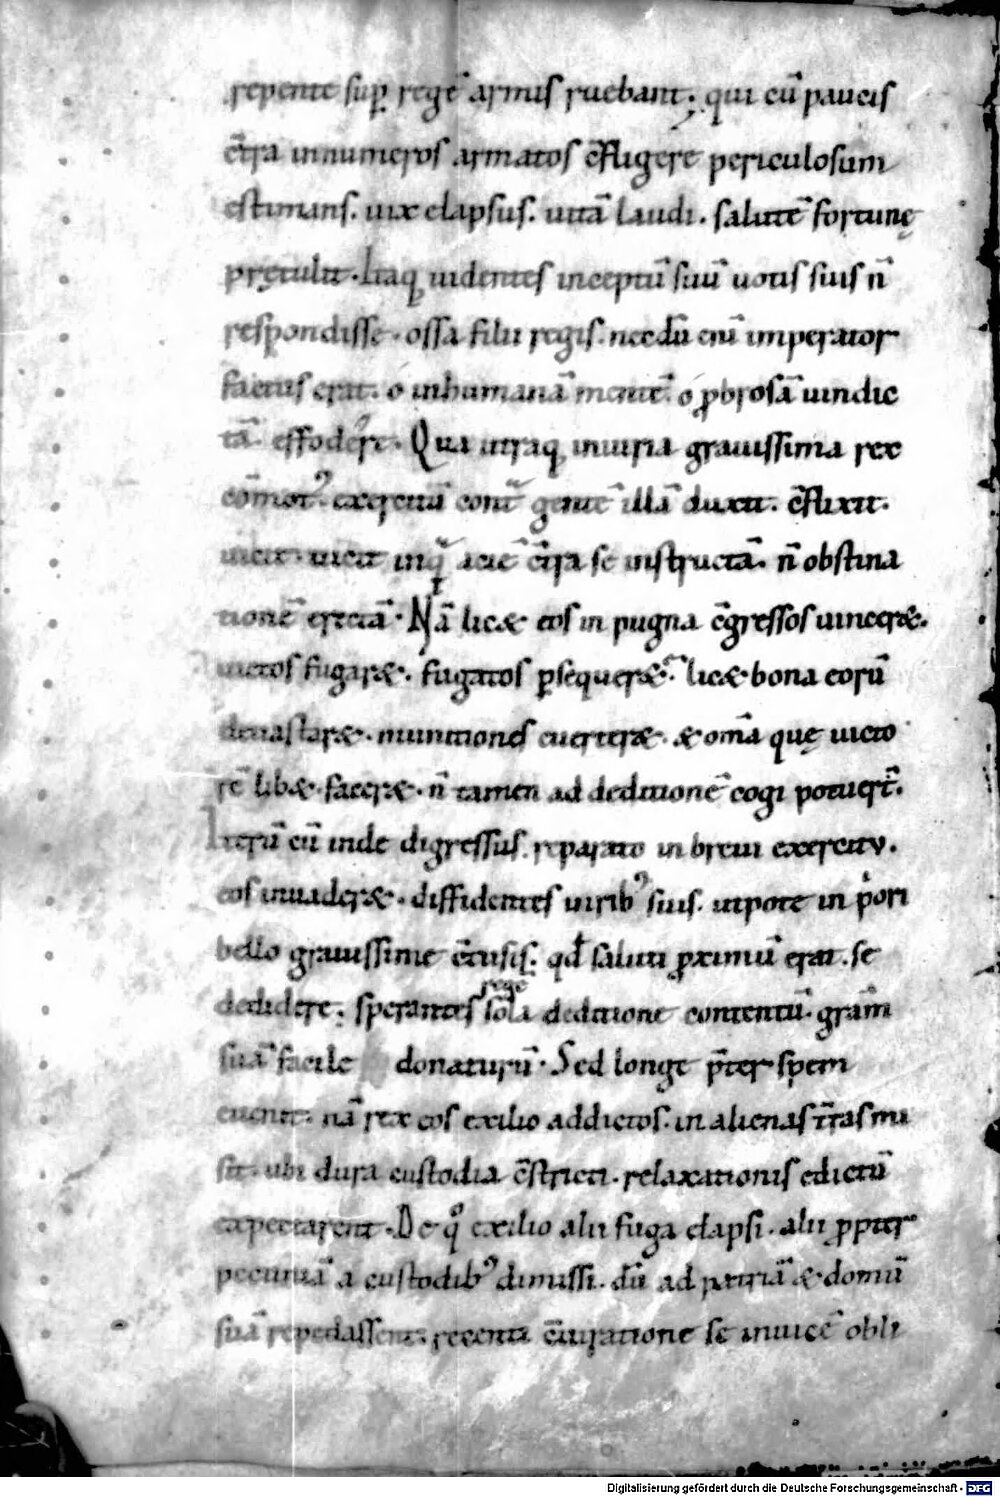 repente sup̱ regē armis ruebant; qui cū paucis
c̄tra innumeros armatos c̄fligere periculosum
estimans. uix elapsus. uitā laudi. salutē fortunę
prętulit. Itaq; uidentes inceptū suū uotis suis n̄
respondisse. ossa filii regis. necdū eni̅ imperator
factus erat. ó inhumanā mentē. ó ꝓbrosā uindic
tā. effoderͤ. Qua utraq; iniuria grauissima rex
cōmotꝰ. exercitū contͣ gentē illā duxit. c̄flixit.
uicit. uicit inqͣ aciē c̄tra se instructā. n̄ obstina
tionē erectā. Nā lic& eos in pugna c̄gressos uincer&.
uictos fugar&. fugatos ꝑsequer&. lic& bona eorū
deuastar&. munitiones euerter&. & om̄a quę uicto
rē lib& facer&. n̄ tamen ad deditionē cogi potuer̄t.
Iterū cū inde digressus. reparato in breui exercitu.
eos inuader&. diffidentes uiribꝰ suis. utpote in pͥori
bello grauissime c̄tusis. qđ saluti ꝓximū erat. se
dedidere; sperantes regē sola deditione contentū. gr̄am
suā facile donaturū. Sed longe p̄ter spem
euenit. nā rex eos exilio addictos. in alienas t̄ras mi
sit. ubi dura custodia c̄stricti. relaxationis edictū
expectarent. De qͦ exilio alii fuga elapsi. alii ꝓpter
pecuniā a custodibꝰ dimissi. dū ad patriā & domū
suā repedassent. recenti c̄iuratione se inuicē obli
Digitalisierung gefördert durch die Deutsche Forschungsgemeinschaft - DFG